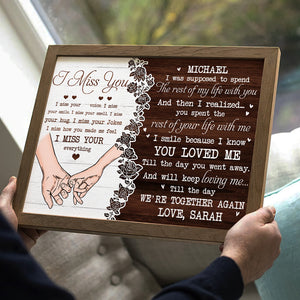 I Miss You
I miss your voice. I miss
your smile. I miss your smell. I miss
your hug. I miss your Jokes
I miss how you made me feel
I MISS YOUR
everything
MICHAEL
I was supposed to spend
The rest of my life with you
And then I realized...
you spent the
rest of your life with me
I smile because I know
YOU LOVED ME
Till the day you went away.
And will keep loving me...
Till the day
WE'RE TOGETHER AGAIN
LOVE, SARAH